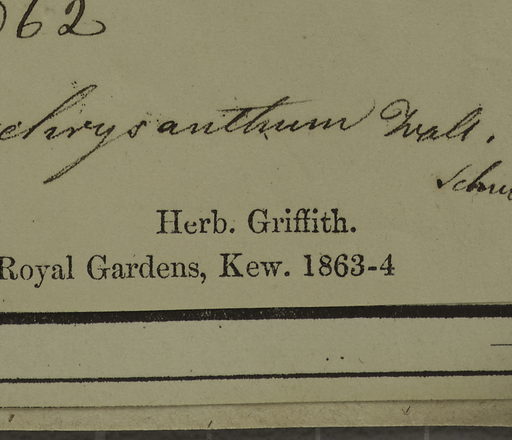 62
chrysanthum Wall.
Herb. Griffith.
Royal Gardens, Kew. 1863-4